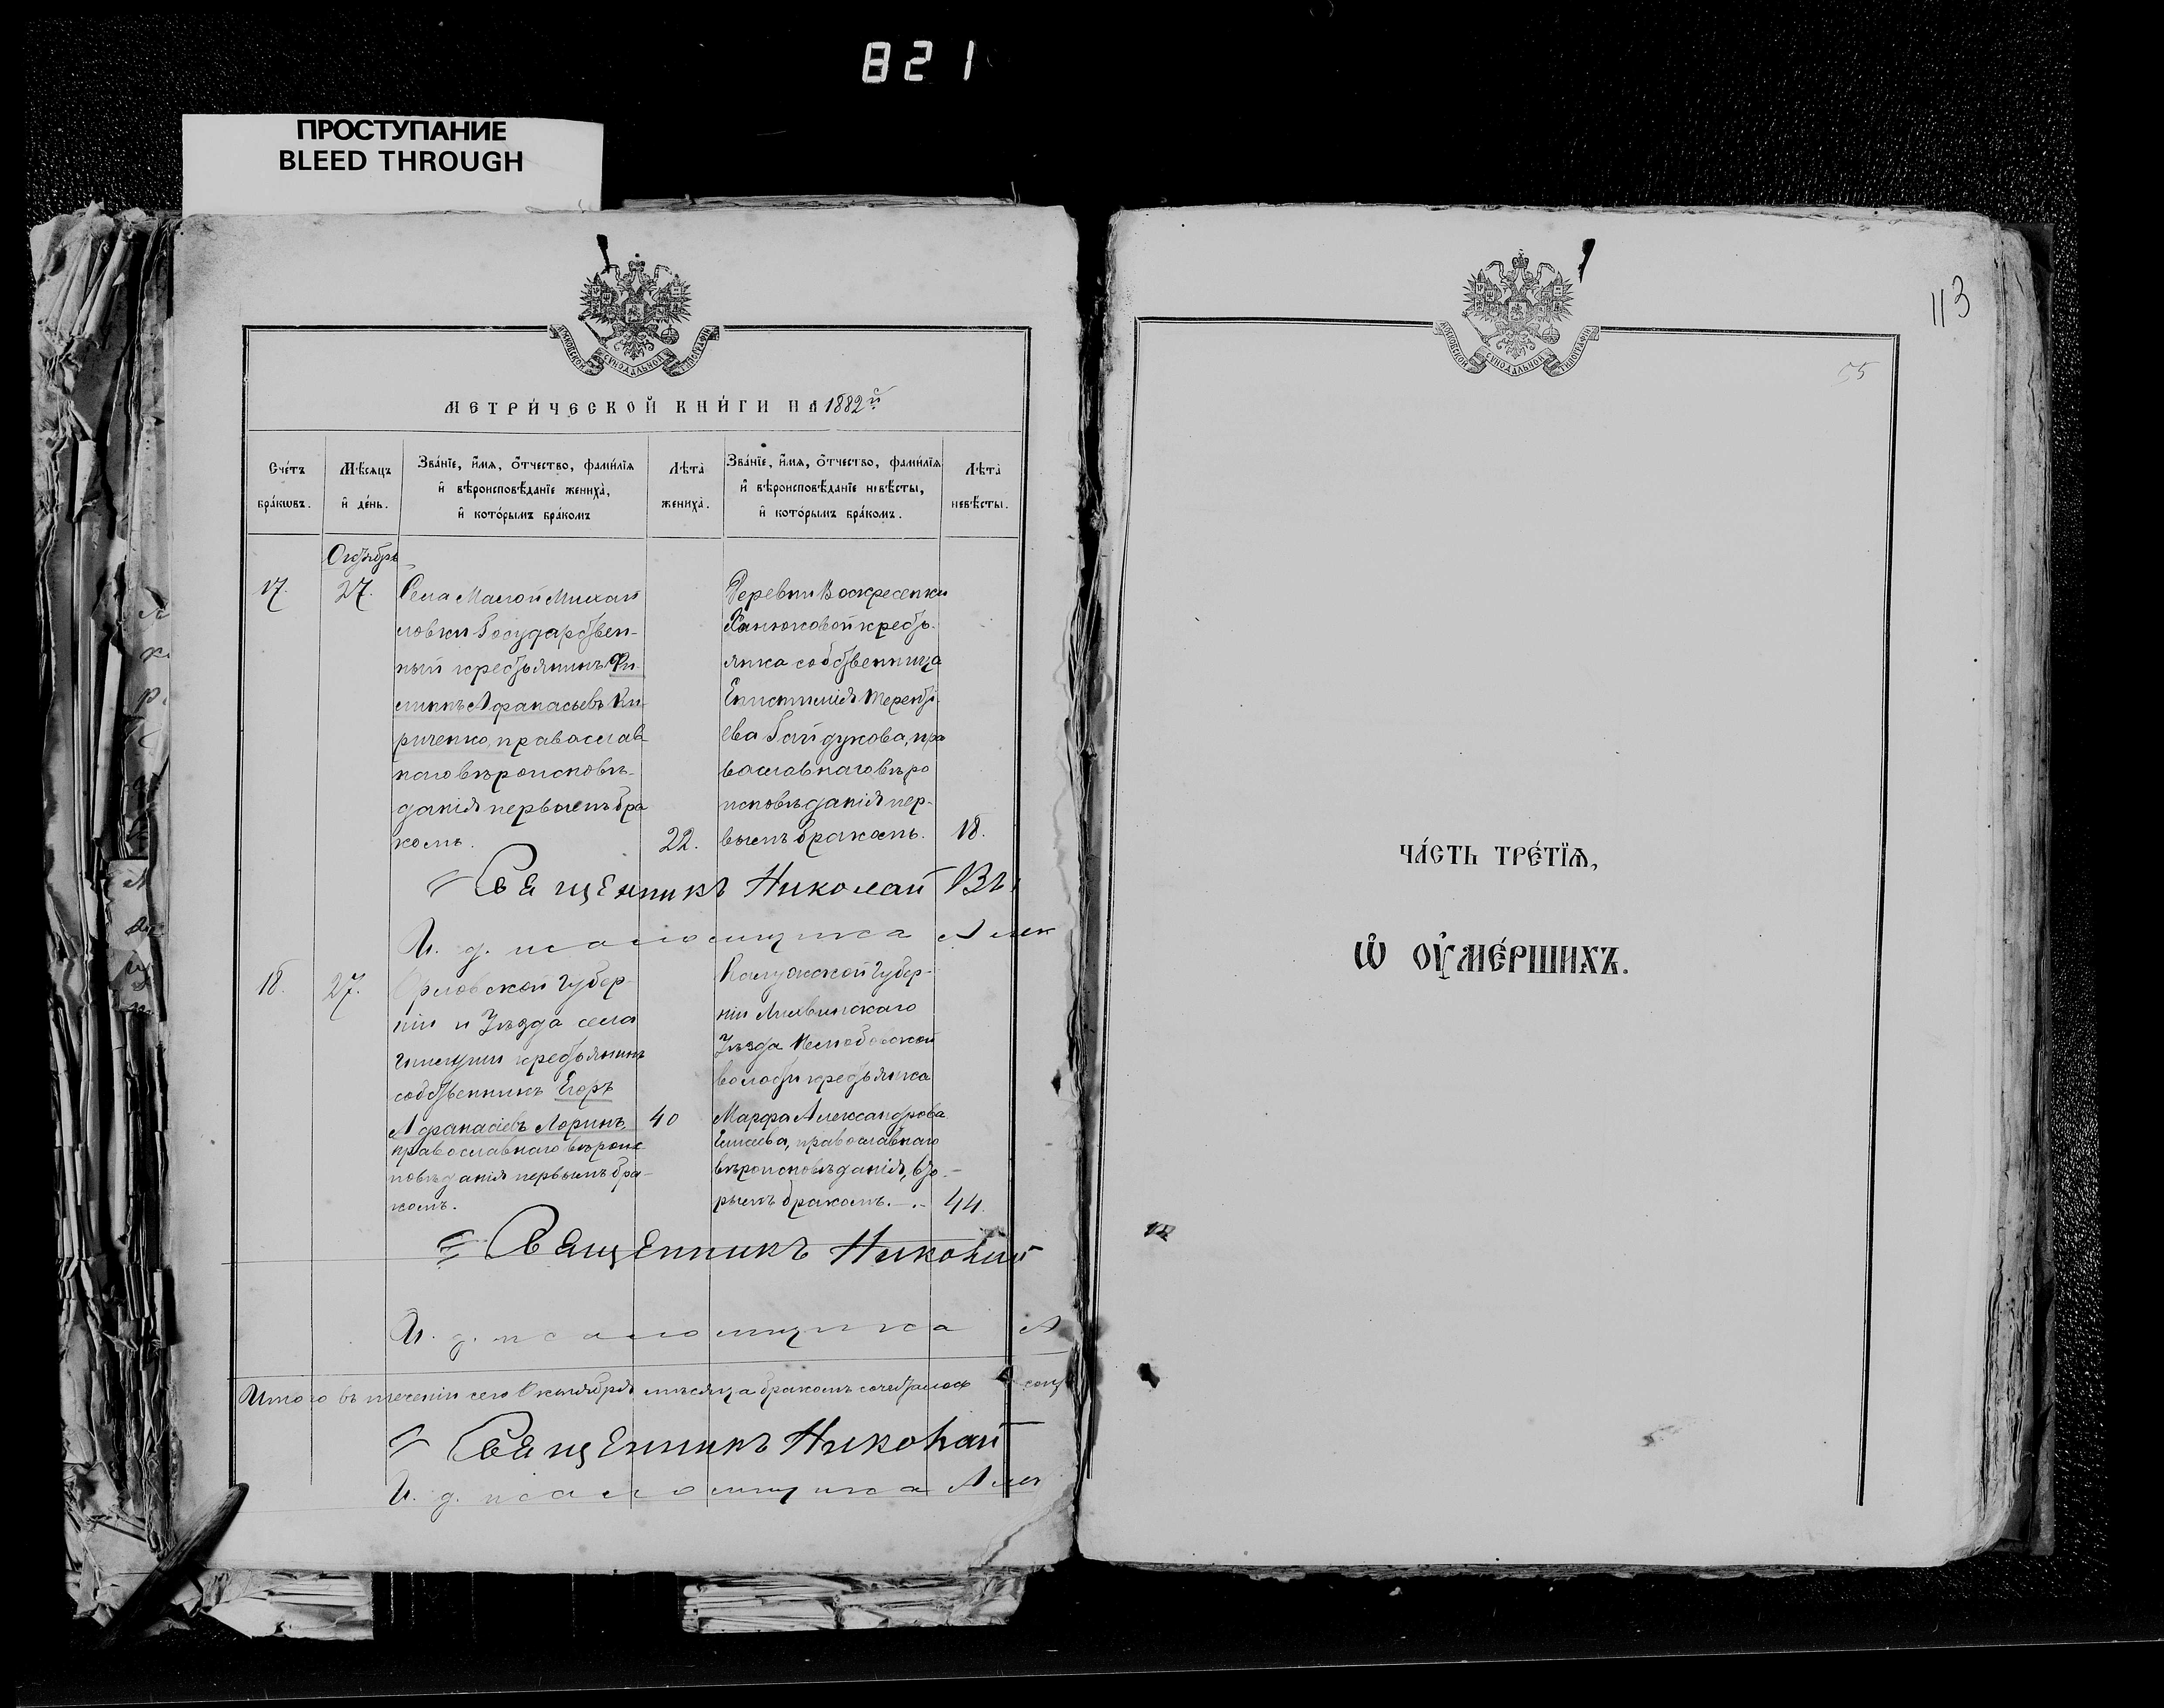 821
ПРОСТУПАНИЕ
BLEED THROUGH
МОСКОВСКОЙ СѴНОДАЛЬНОЙ ТИПОГРАФІИ
МЕТРИ́ЧЕСКОЙ КНИ́ГИ НА 1882й
Сче́тъ бра́кѡвъ.
Мѣ́сяцъ и҆ де́нь.
Зва́нїе, и҆́мѧ, ѻ҆́тчество, фамилїѧ
и҆ вѣроисповѣ́данїе жениха̀,
и҆ кото́рымъ бра́комъ
Лѣ́та жениха̀.
Зва́нїе, и҆́мѧ, ѻ҆́тчество, фамилїѧ
и҆ вѣроисповѣ́данїе невѣ́сты,
и҆ кото́рымъ бра́комъ.
Лѣ́та невѣ́сты.
Октябрь
17.
27.
Села Малой Михай
ловки Государствен-
ный крестьянинъ Фи
липпъ Афанасьевъ Ки
риченко, православ
наго вѣроисповѣ-
данія первымъ бра
комъ.
22.
Деревни Воскресенки
крестъ-
янка собственница
Епистимія Теренті
ева Гайдукова, пра
вославнаго вѣро
исповѣданія пер-
вымъ бракомъ.
18.
Священникъ Николай
И. д. псаломщика Алек
18.
27.
Орловской Губер-
ніи и Уѣзда села
крестьянинъ
собственникъ Егоръ
Афанасіевъ Ларинъ,
православнаго вѣроис
повѣданія первымъ бра-
комъ.
40
Калужской Губер-
ніи Лихвинскаго
Уѣзда
волости крестьянка
Марфа Александрова
Елисеева, православнаго
вѣроисповѣданія, вто-
рымъ бракомъ.
44.
Священникъ Николай
И. д. псаломщика А
Итого въ теченіи сего Октября мѣсяца бракомъ сочеталось
Священникъ Николай
И. д. псаломщика Алек
МОСКОВСКОЙ СѴНОДАЛЬНОЙ ТИПОГРАФІИ
113
55
ЧА́СТЬ ТРЕ́ТЇѦ,
Ѡ҆ ОУ҆МЕ́РШИХЪ.